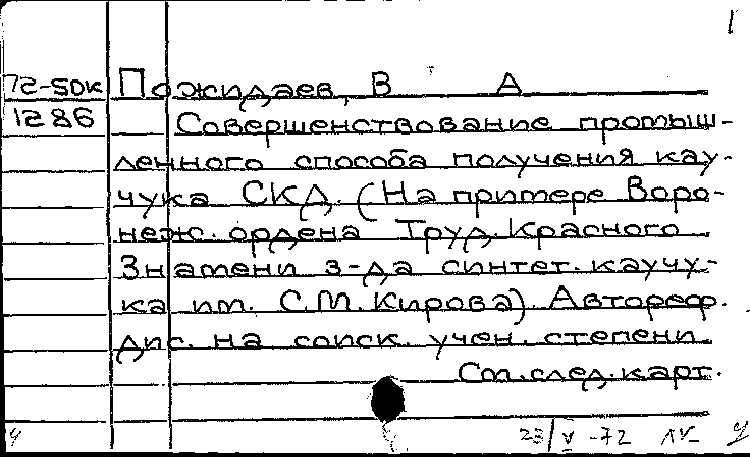 1
72-50к Пожидаев, В А
1286 Совершенствование промыш-
ленного способа получения кау-
чука СКД. (На примере Воро-
неж. ордена Труд. Красного
Знамени з-да синтет. каучу-
ка им. С.М. Кирова). Автореф.
дис. на соиск. учен. степени.
См. след. карт.
23/V -72